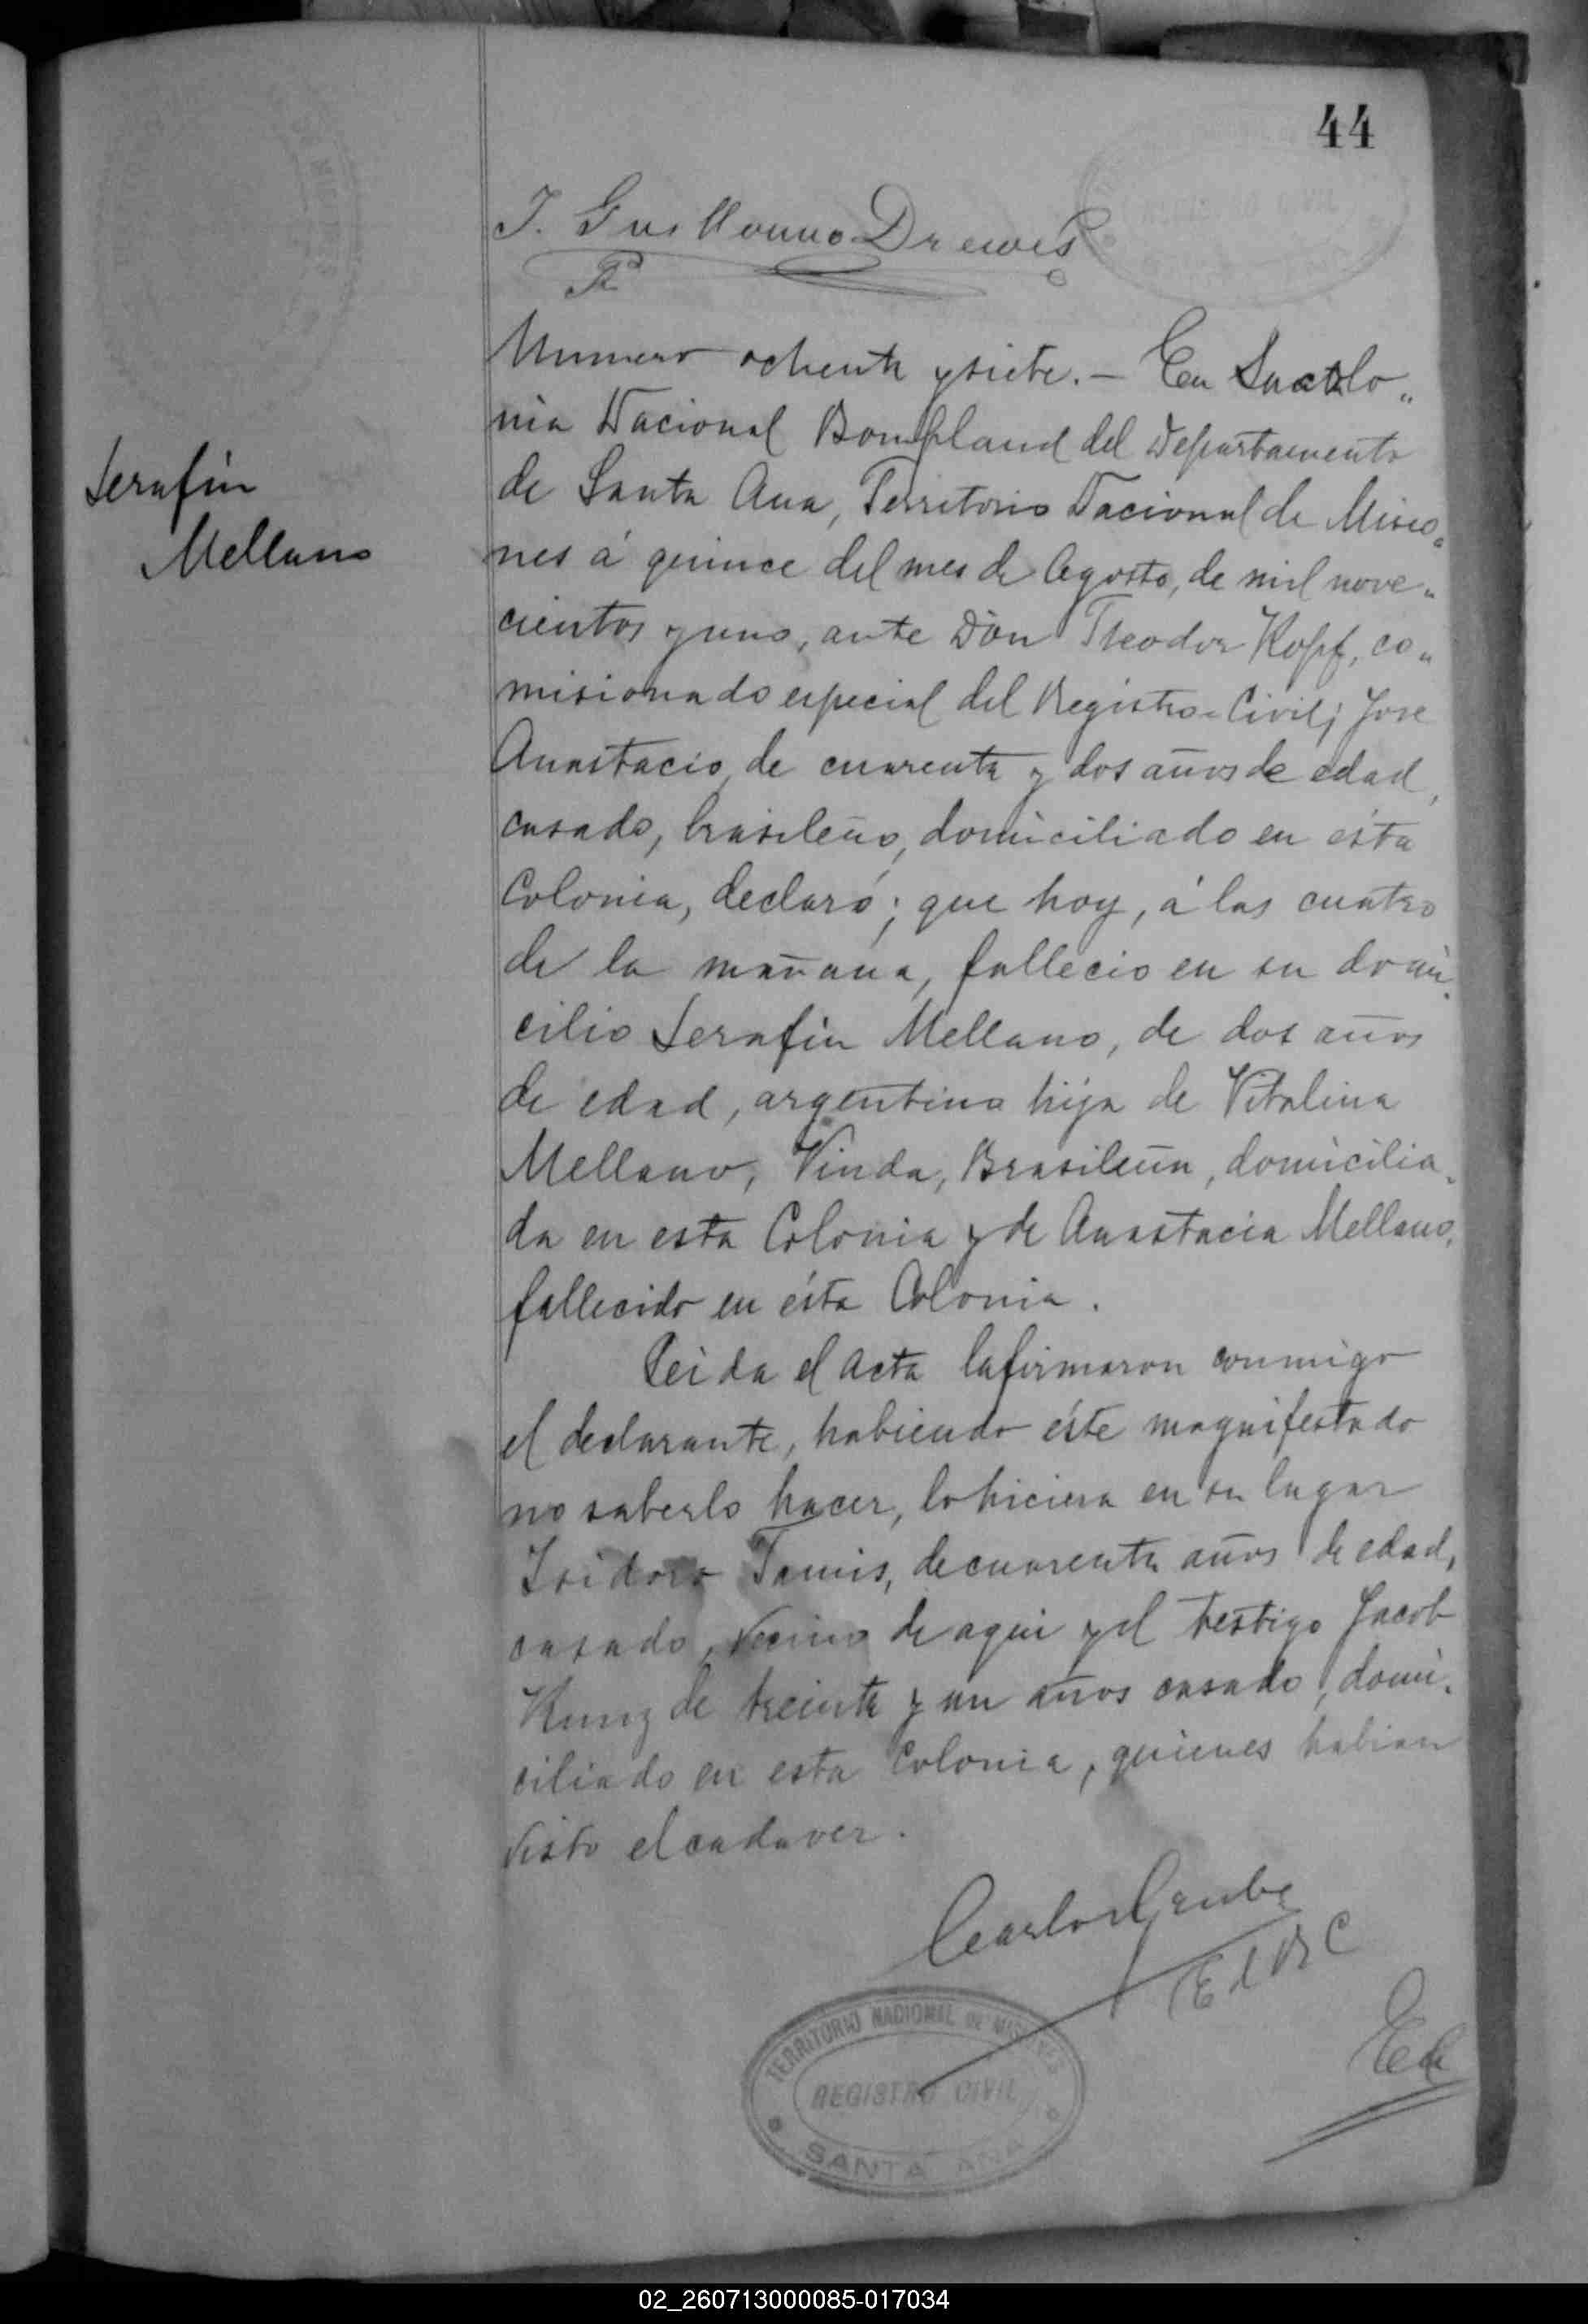 44
J. Guillermo Drewes
Serafin
Mellano
Numero ochenta y siete. – En La Colo„
nia Nacional Bompland del Departamento
de Santa Ana, Territorio Nacional de Misio„
nes á quince del mes de Agosto, de mil nove„
cientos y uno, ante Don Theodor Kopf, co„
misionado especial del Registro-Civil; Jose
Anastacio, de cuarenta y dos años de edad,
casado, brasileño, domiciliado en ésta
Colonia, declaró; que hoy, á las cuatro
de la mañana, fallecio en su domi„
cilio Serafin Mellano, de dos años
de edad, argentino hijo de Vitalina
Mellano, Viuda, Brasileña, domicilia„
da en esta Colonia y de Anastacia Mellano,
fallecido en ésta Colonia.
Leida el acta la firmaron conmigo
el declarante, habiendo éste magnifestado
no saberlo hacer, lo hiciera en su lugar
Isidoro de cuarenta años de edad,
casado, vecino de aqui y el testigo Jacob
Kunz de treinta y un años casado, domi„
ciliado en esta Colonia, quienes habian
visto el cadaver.
Carlos
E d R C
TERRITORIO NACIONAL DE MISIONES
REGISTRO CIVIL
SANTA ANA
02_260713000085-017034